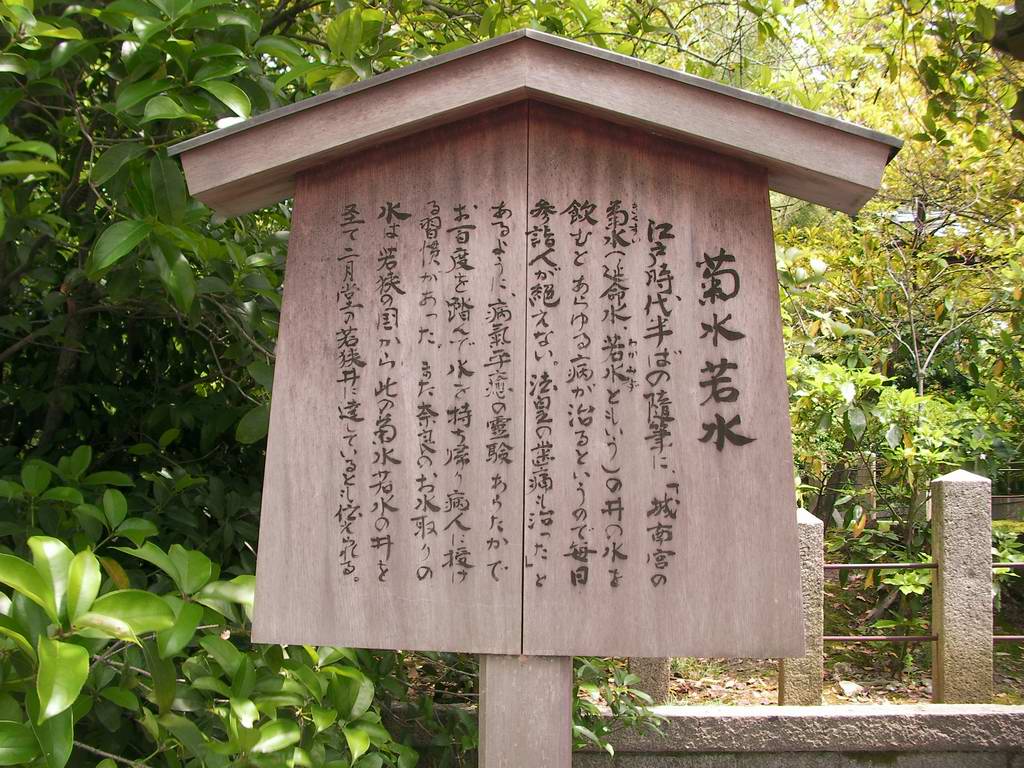 菊水若水
江戸時代半ばの随筆に、「城南宮の
菊水（延命水、若水ともいう）の井の水を
飲むとあらゆる病が治るというので毎日
参詣人が絶えない。法皇の歯痛も治った」と
あるように、病氣平癒の霊験あらたかで
お百度を踏んで水を持ち帰り病人に授け
る習慣があった。また奈良のお水取りの
水は若狭の国から此の菊水若水の井を
至て二月堂の若狭井に達しているとも伝えられる。
きくすい
わかみず